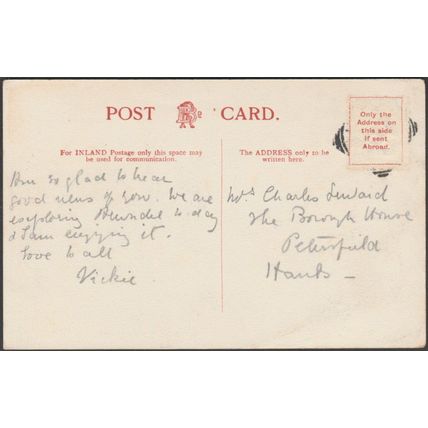 POST CARD.
For INLAND Postage only this space may
be used for communication.
The ADDRESS only to be
written here.
Only the
Address on
this side
if sent
Abroad.
Am so glad to hear
good news of you. We are
exploring Arundel to-day
& I am enjoying it.
Love to all
Vickie.
Mrs Charles
The Borough House
Petersfield
Hants -